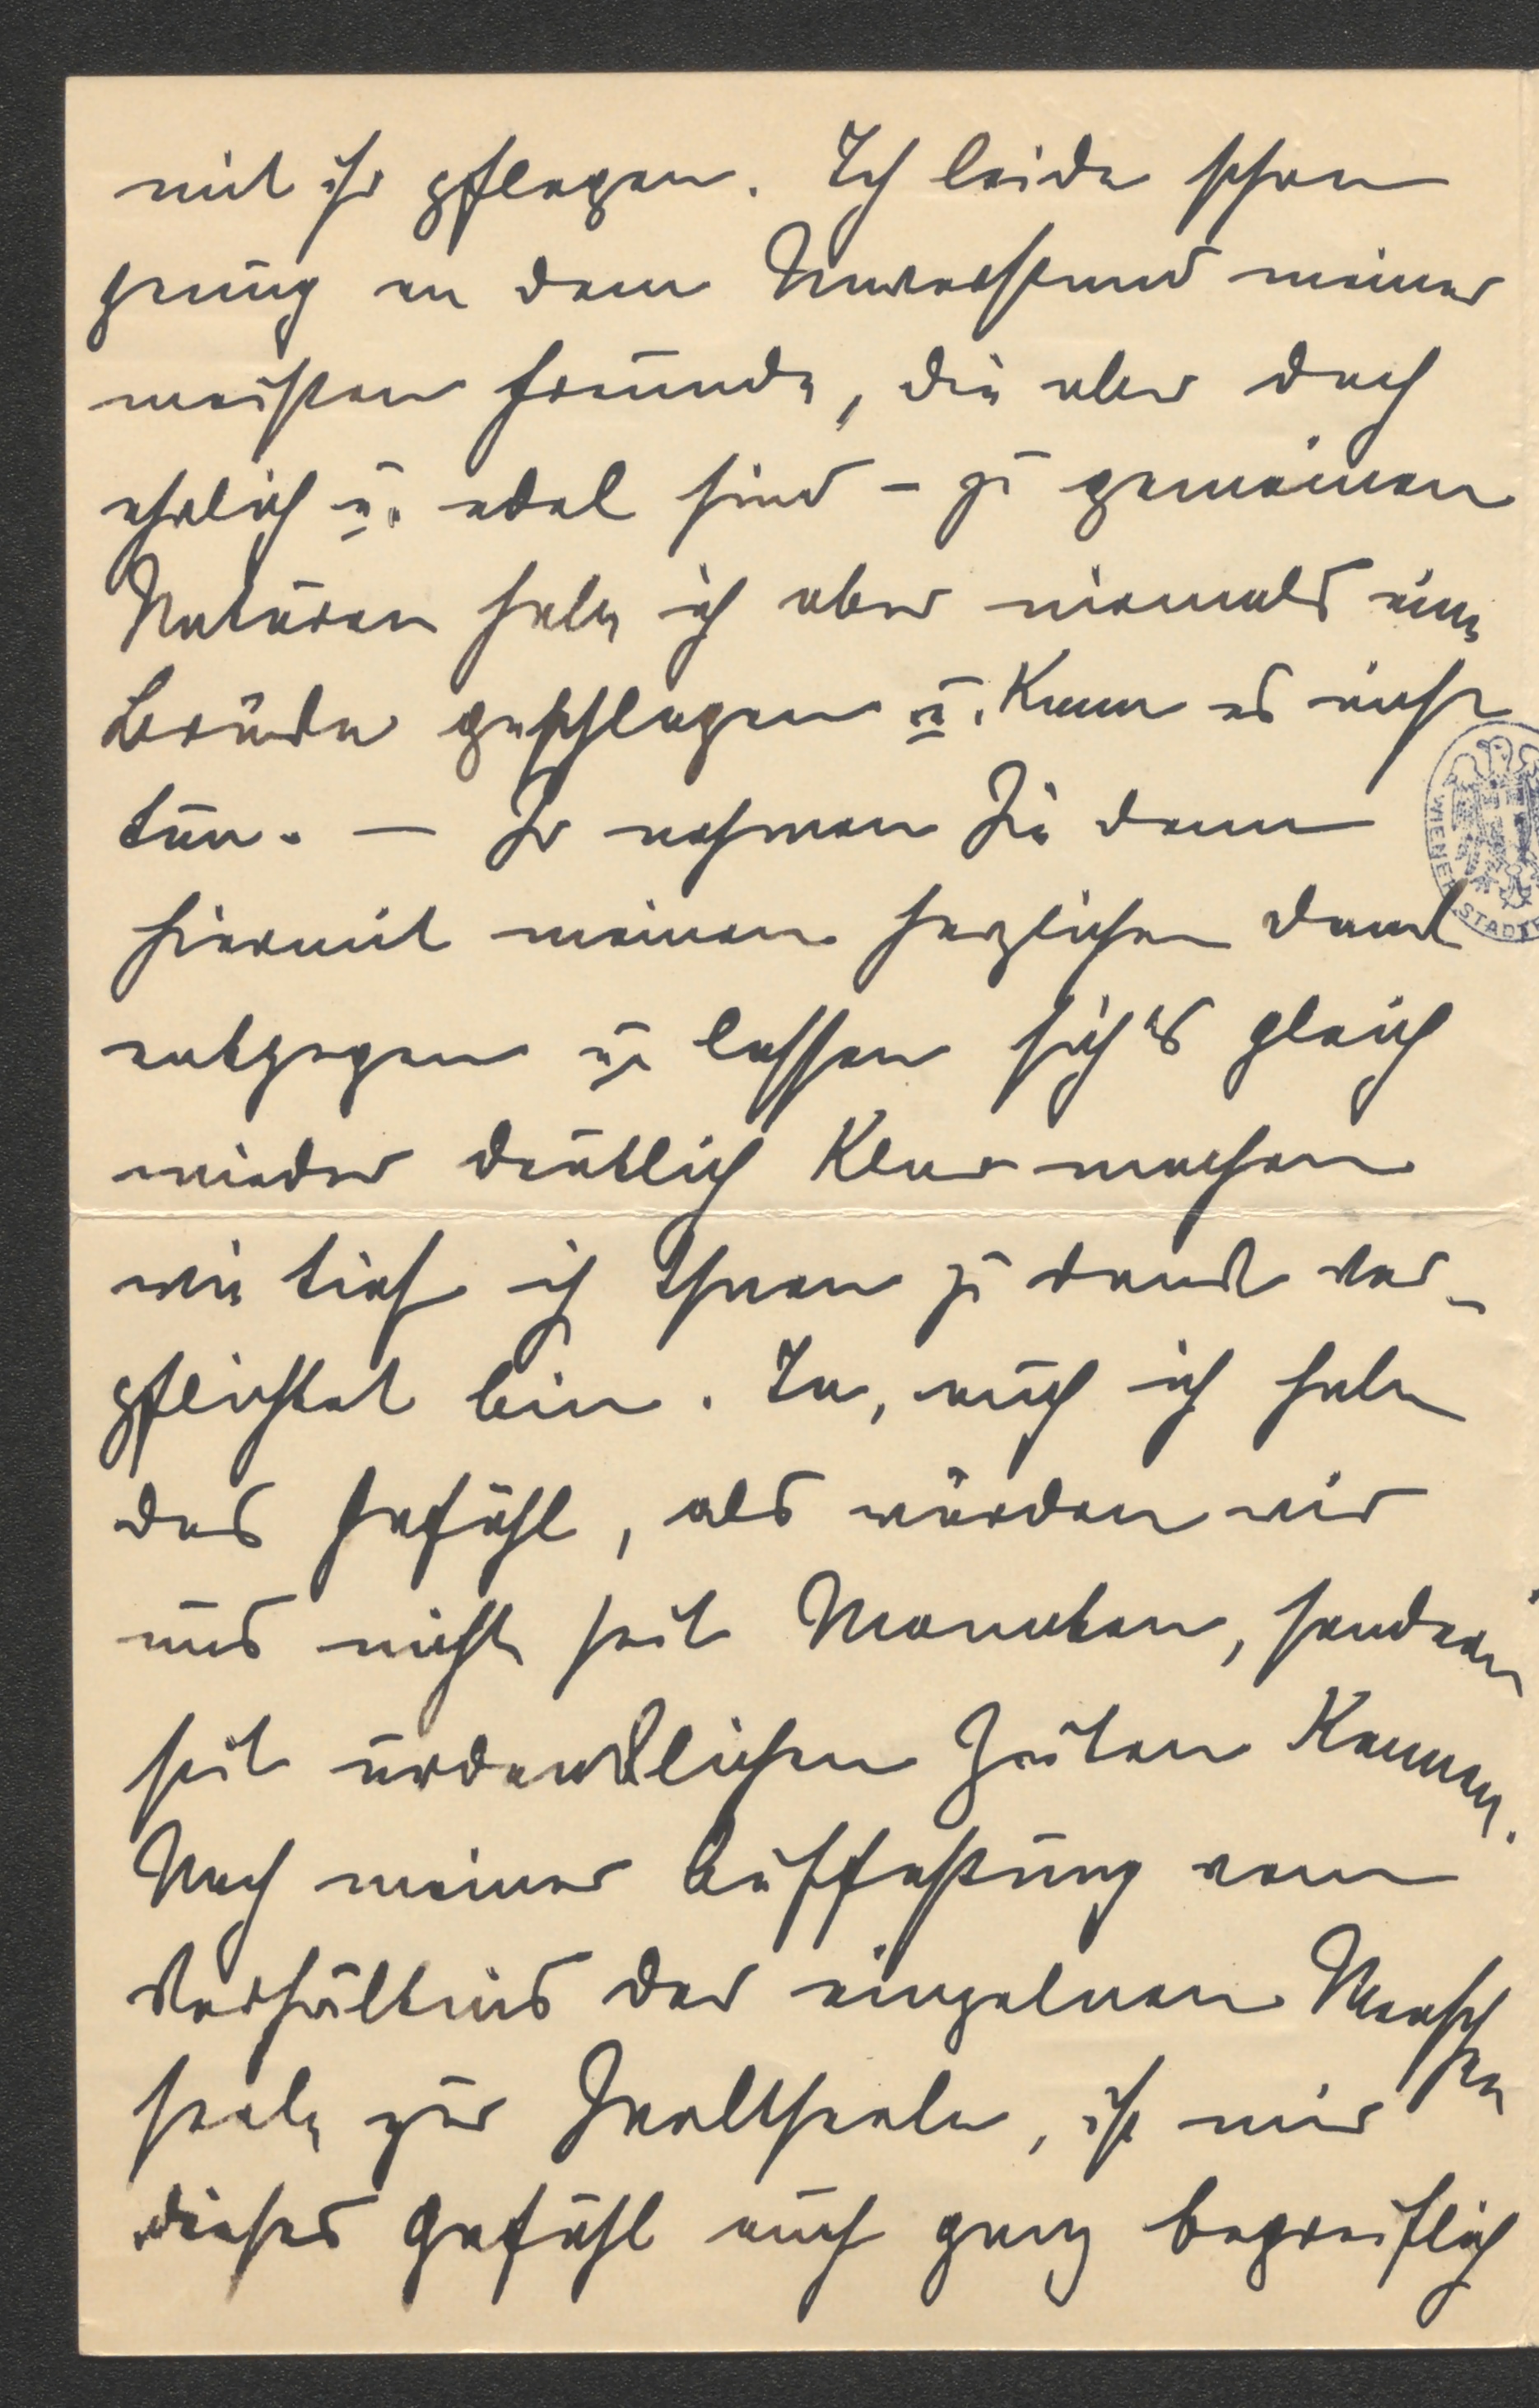 mit ihr pflegen. Ich leide schon
genug an dem Unverstand meiner
meisten Freunde, die aber doch
ehrlich u. edel sind – zu gemeinen
Naturen habe ich aber niemals eine
Brücke geschlagen u. kann es nicht
tun. — So nehmen Sie denn
hiermit meinen herzlichen Dank
entgegen u. lassen sich's gleich
wieder deutlich klar machen
wie tief ich Ihnen zu Dank ver-
pflichtet bin. Ja, auch ich habe
das Gefühl, als würden wir
uns nicht seit Monaten, sondern
seit urdenklichen Zeiten kennen.
Nach meiner Auffassung vom
Verhältnis der einzelnen Menschen
seele zur Weltseele, ist mir
dieses Gefühl auch ganz begreiflich
WIENER
STADT